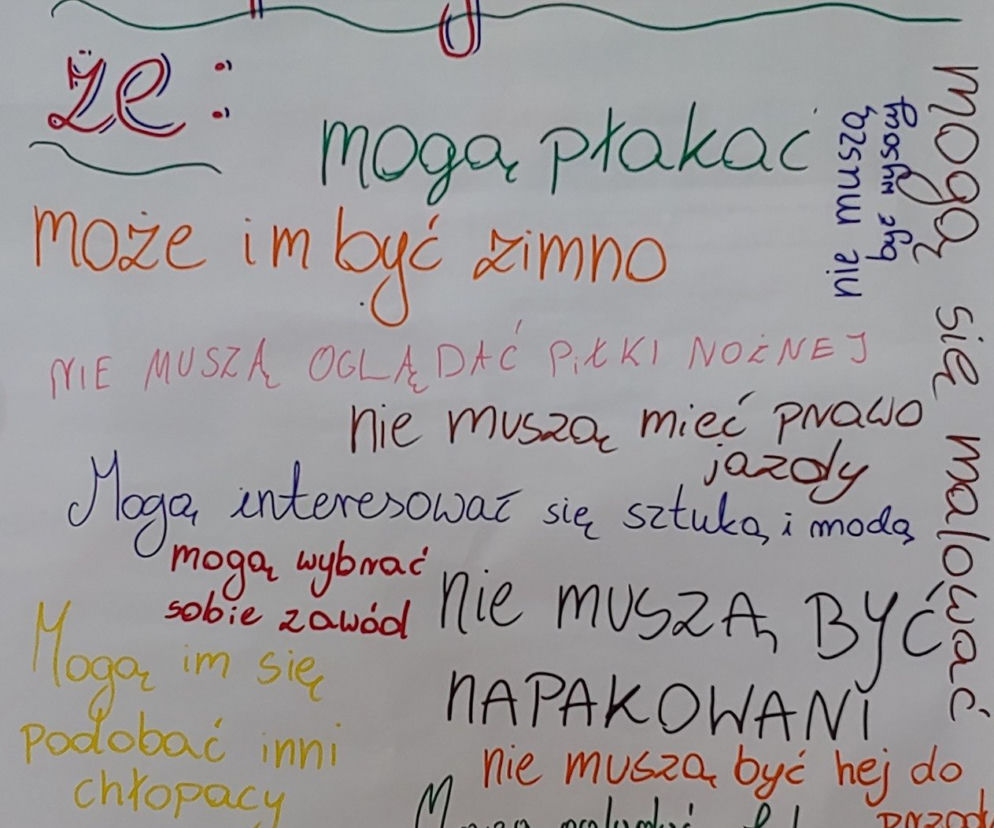 że:
mogą płakać
może im być zimno
NIE MUSZĄ OGLĄDAĆ PIŁKI NOŻNEJ
nie muszą mieć prawo
jazdy
Mogą interesować się sztuką i modą
mogą wybrać
sobie zawód
nie MUSZĄ BYĆ
NAPAKOWANI
Mogą im się
podobać inni
chłopacy
nie muszą być hej do
nie muszą
być wysocy
mogą się malować